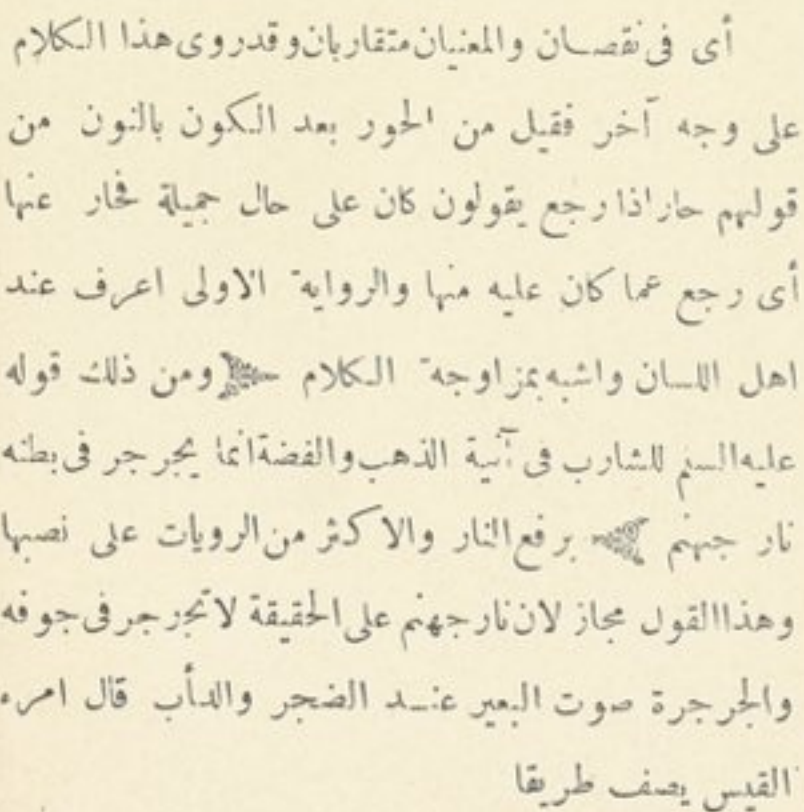 أى فى نقصان والمعنيان متقاربان وقدروى هذا الكلام
على وجه آخر فقيل من الحور بعد الكون بالنون من
قولهم حار اذا رجع يقولون كان على حال جميلة فحار عنها
أى رجع عما كان عليه منها والرواية الاولى اعرف عند
اهل اللسان واشبه بمزاوجة الكلام ومن ذلك قوله
عليه السلم للشارب فى آنية الذهب والفضة انما يجرجر فى بطنه
نار جهنم برفع النار والاكثر من الرويات على نصبها
وهذا القول مجاز لان نار جهنم على الحقيقة لا تجرجر فى جوفه
والجرجرة صوت البعير عند الضجر والدأب قال امرء
القيس يصف طريقا